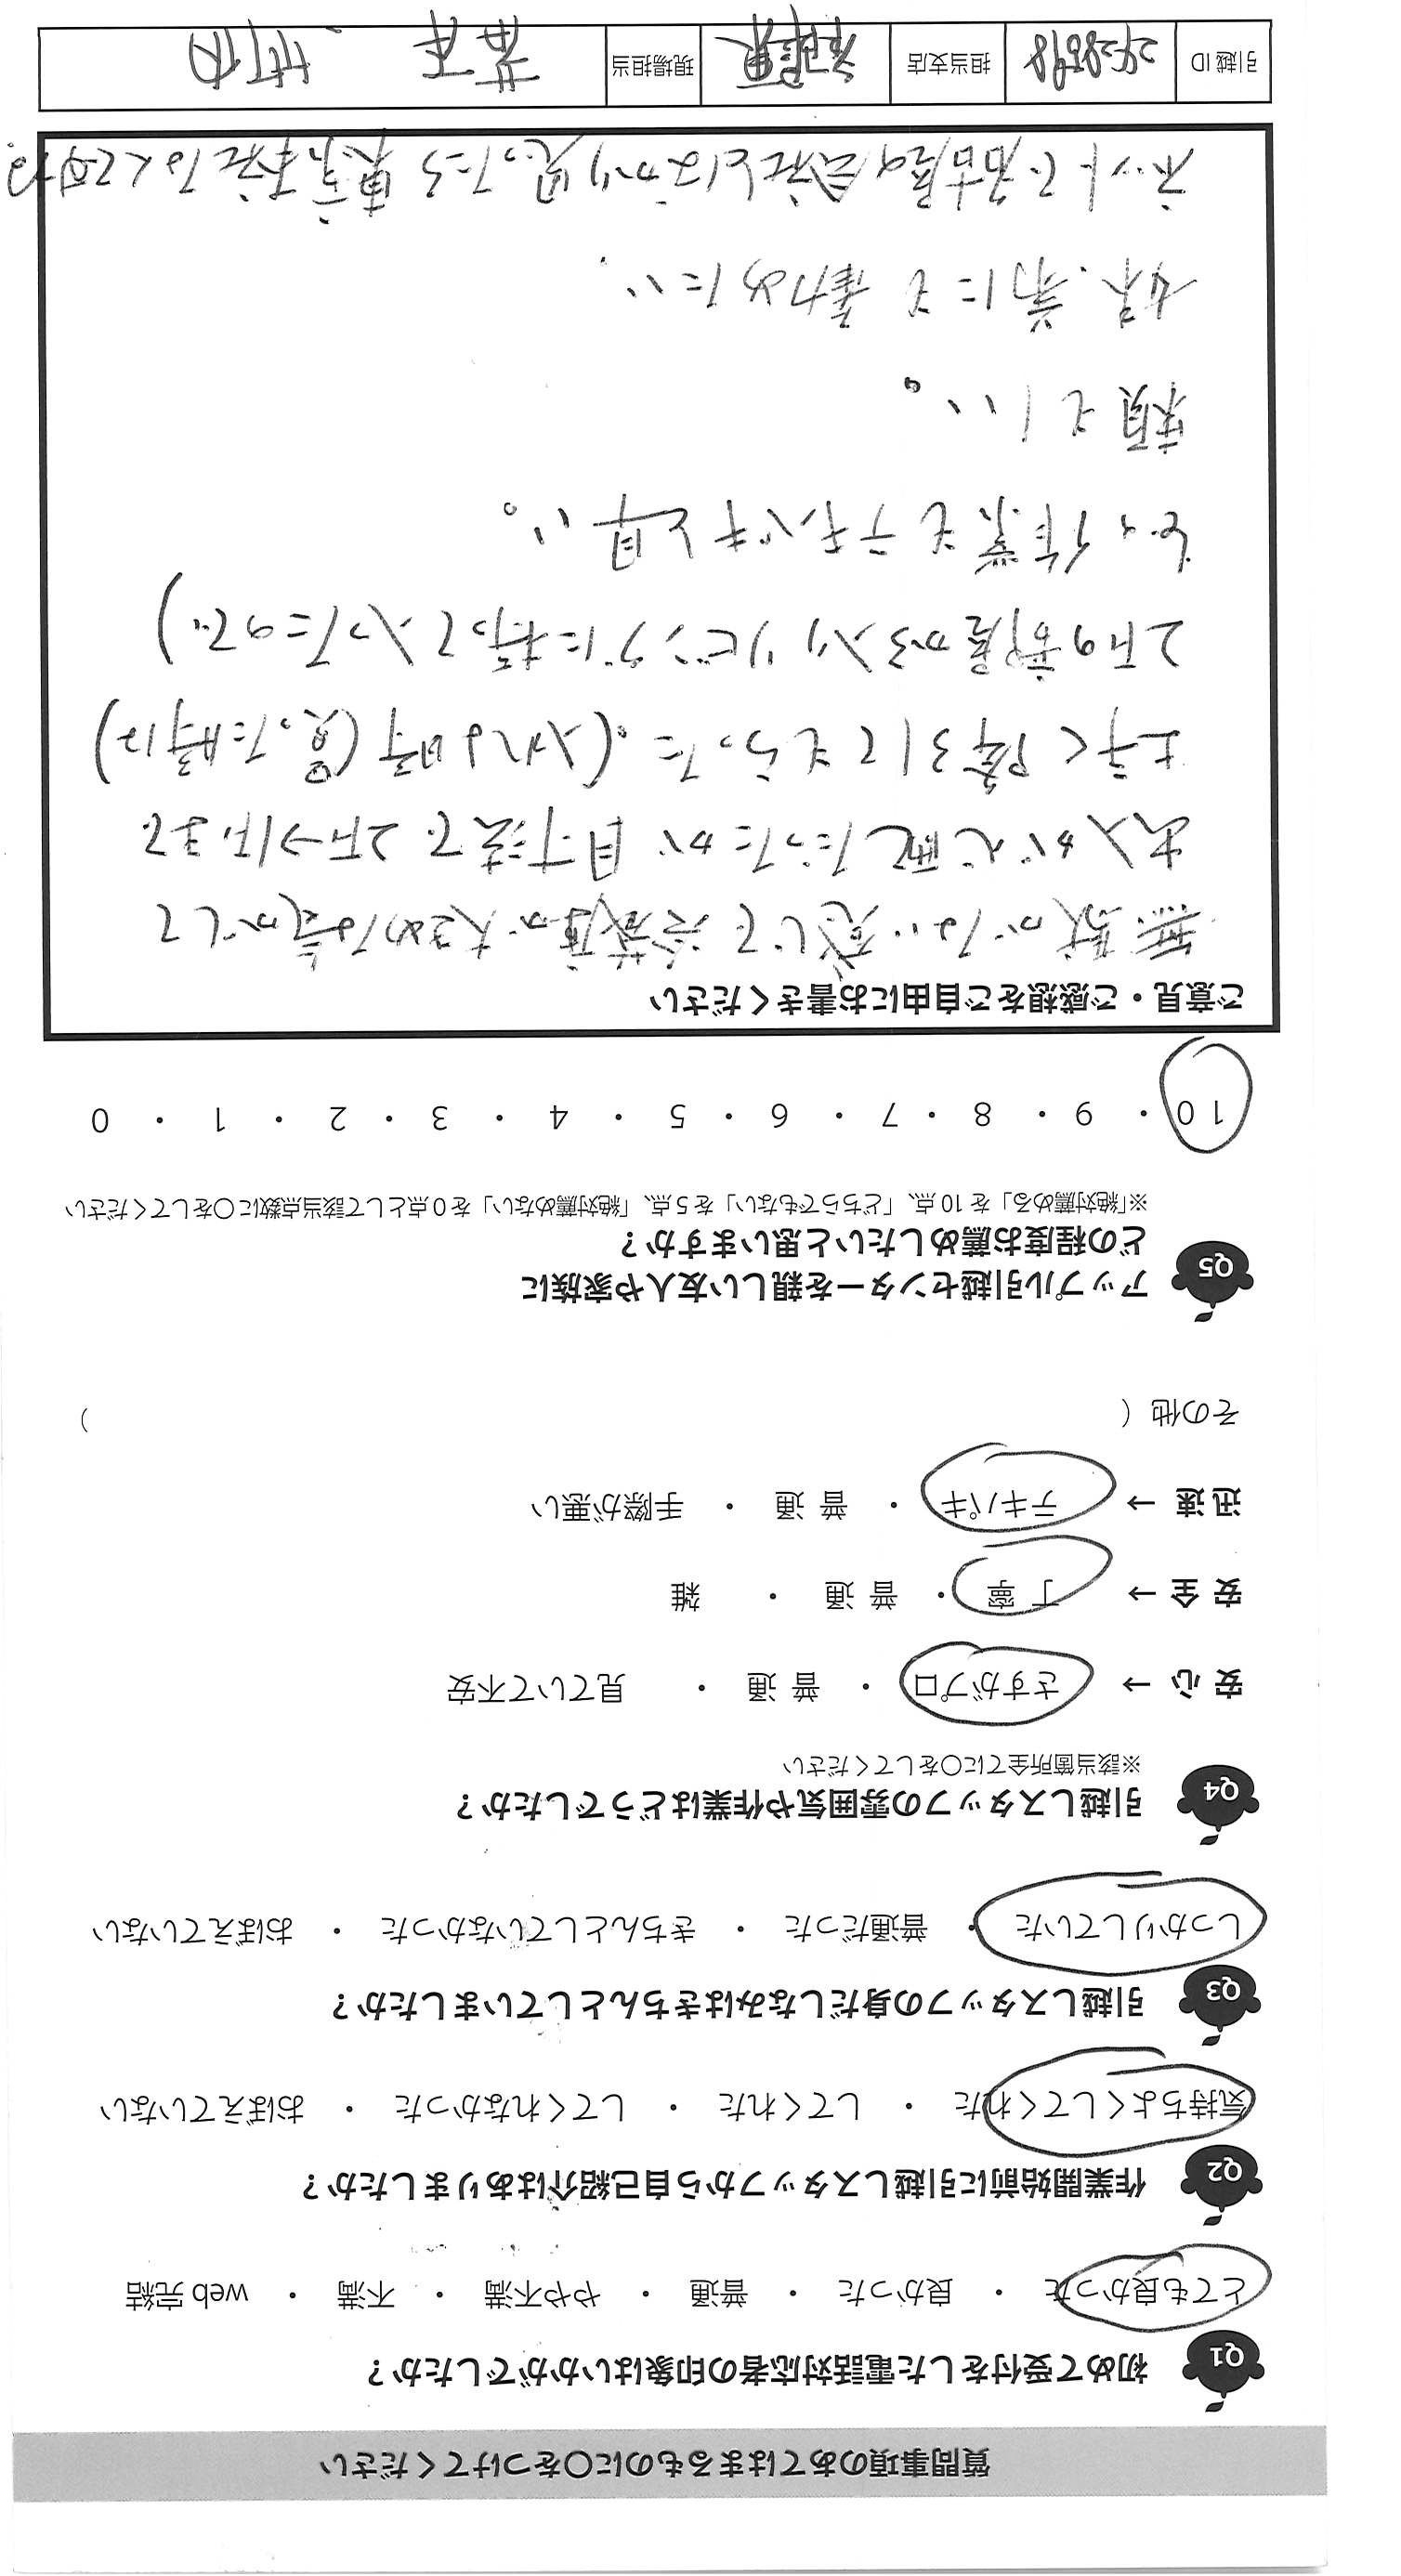 質問事項のあてはまるものに〇をつけてください
Q1 初めて受付をした電話対応者の印象はいかがでしたか？
とても良かった ・ 良かった ・ 普通 ・ やや不満 ・ 不満 ・ web 完結
Q2 作業開始前に引越しスタッフから自己紹介はありましたか？
気持ちよくしてくれた ・ してくれた ・ してくれなかった ・ おぼえていない
Q3 引越しスタッフの身だしなみはきちんとしていましたか？
しっかりしていた ・ 普通だった ・ きちんとしていなかった ・ おぼえていない
Q4 引越しスタッフの雰囲気や作業はどうでしたか？
※該当箇所全てに〇をしてください
安 心 → さすがプロ ・ 普 通 ・ 見ていて不安
安 全 → 丁 寧 ・ 普 通 ・ 雑
迅 速 → テキパキ ・ 普 通 ・ 手際が悪い
その他（ ）
Q5 アップル引越センターを親しい友人や家族に
どの程度お薦めしたいと思いますか？
※「絶対薦める」を 10 点、「どちらでもない」を 5 点、「絶対薦めない」を 0 点として該当点数に〇をしてください
10 ・ 9 ・ 8 ・ 7 ・ 6 ・ 5 ・ 4 ・ 3 ・ 2 ・ 1 ・ 0
ご意見・ご感想をご自由にお書きください
無駄がない 冷蔵庫が大きめな
出入が心配だったが 目寸法で 2F→1Fまで
上手く降ろしてもらった。(入れる時(買った時は)
2Fの部屋から入りリビングに持って入ったので)
作業もテキパキと早い。
頼もしい。
妹、弟にも薦めたい。
ネットで名古屋の会社とばかり思ったら東京本社
引越 ID 担当支店 現場担当